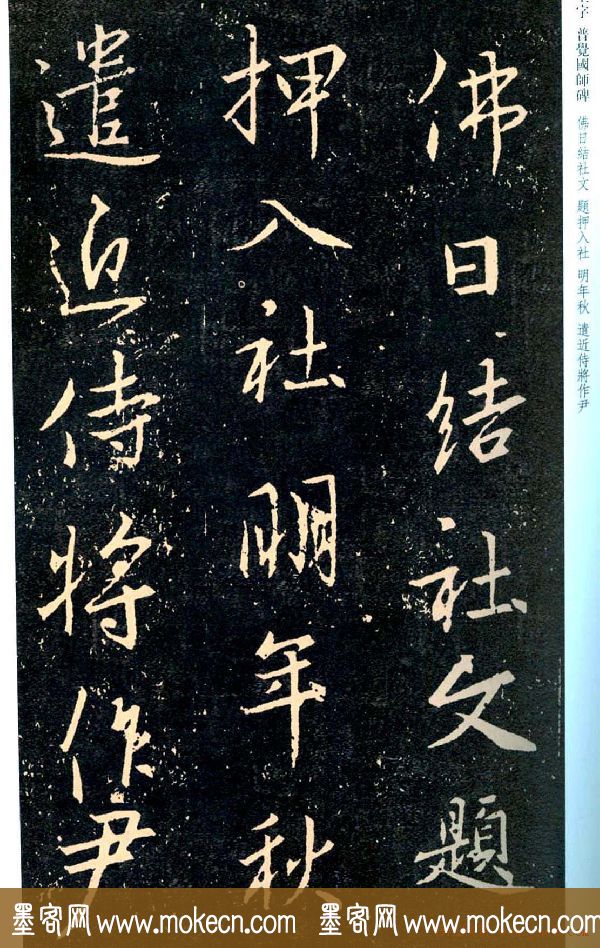 普覺國師碑 佛日結社文 題押入社 明年秋 遣近侍將作尹
佛日結社文題
押入社明年秋
遣近侍將作尹
墨客网 www.mokecn.com 墨客网 www.mokecn.com